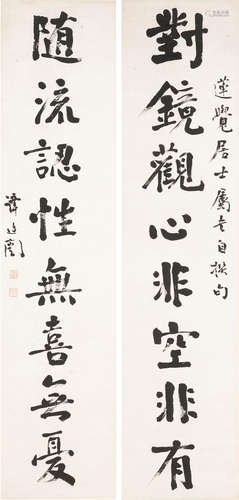 對鏡觀心非空非有
蓮覺居士屬書自撰句
随流認性無喜無憂
譚延闓